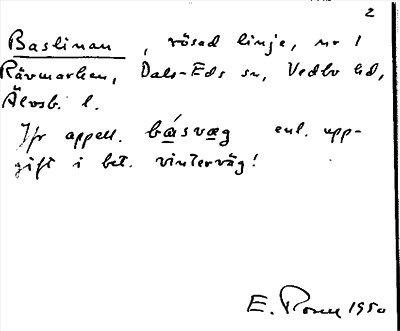 2
Baslinan, rösad linje, nr 1
Rävmarken, Dals-Eds sn, Vedbo hd,
Älvsb. l.
Jfr appell. básvæg enl. upp-
gift i bet. vinterväg!
E. Rosell 1950